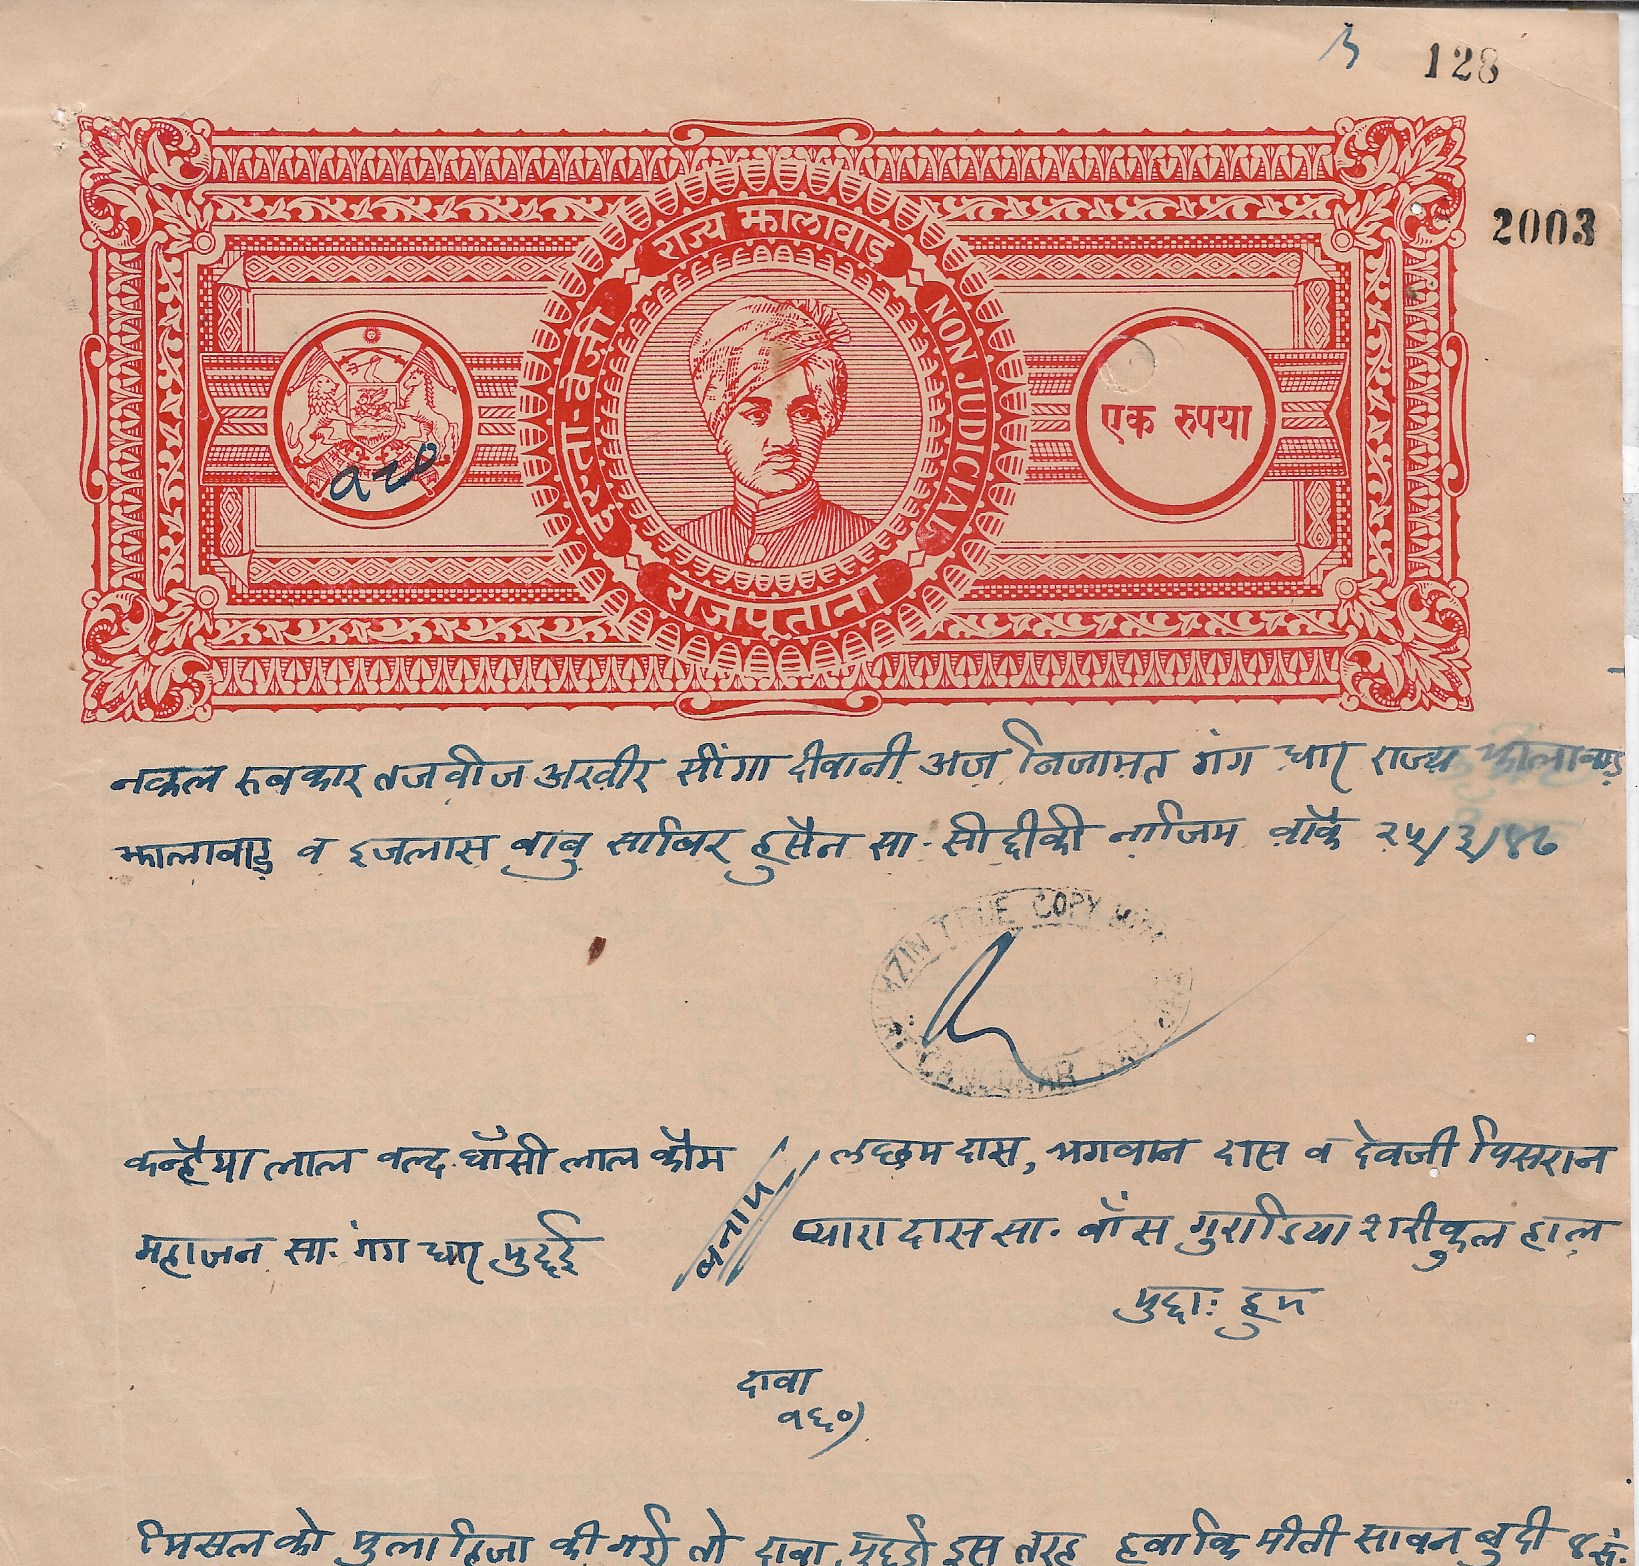 128
2003
राज्य झालावाड़
दस्ता-वेज़ी
NON JUDICIAL
राजपूताना
एक रुपया
नकल रुबकार तजवीज अखीर सींगा दीवानी अज निजामत गंग धार राज्य झालावाड़
झालावाड़ व इजलास बाबु साबिर हुसैन सा. सीद्दीकी नाजिम वाकै २५/३/४७
TRUE COPY
GANGDHAR
कन्हैया लाल वल्द घाँसी लाल कौम
महाजन सा. गंग धार मुद्दई
बनाम
लछमदास, भगवान दास व देवजी पिसरान
प्यारा दास सा. बाँस गुराडिया शरीकुल हाल
मुद्दा: हुम
दावा
१६०)
मिसल को मुलाहिजा की गई तो दावा मुद्दई इस तरह हवा कि मीती सावन बुदी